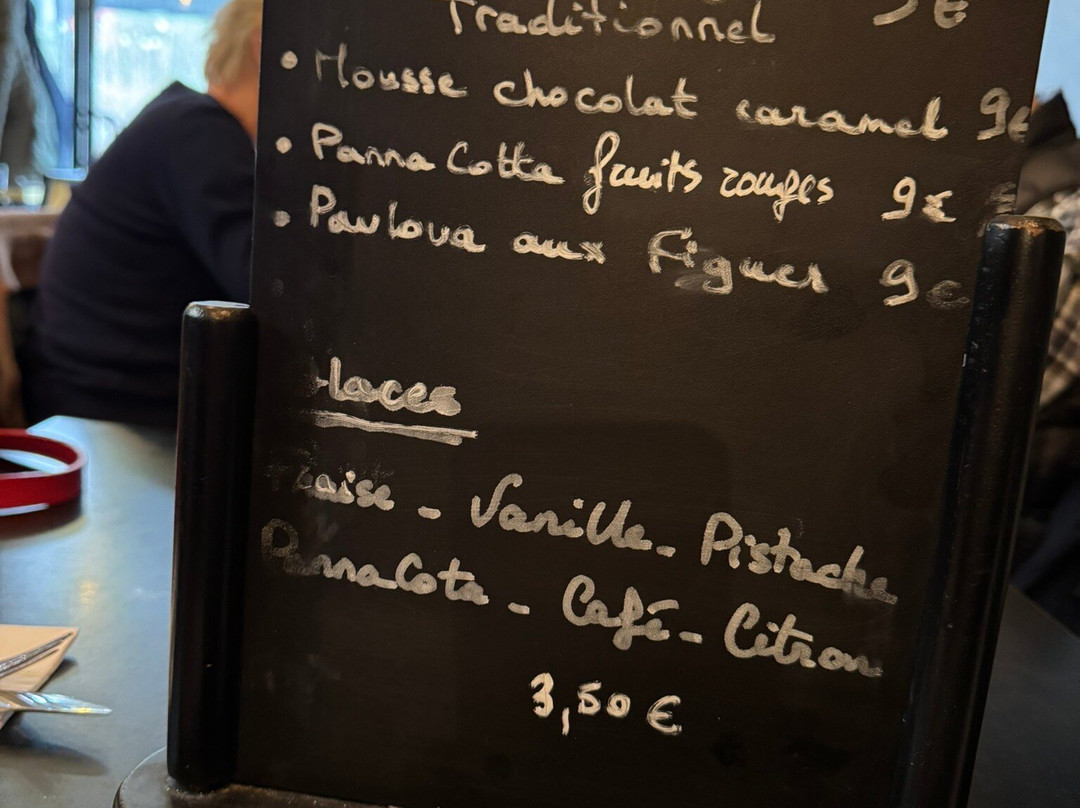 Traditionnel 9€
• Mousse chocolat caramel 9€
• Panna Cotta fruits rouges 9€
• Pavlova aux Figues 9€
Glaces
Fraise - Vanille - Pistache
PannaCota - Café - Citron
3,50 €